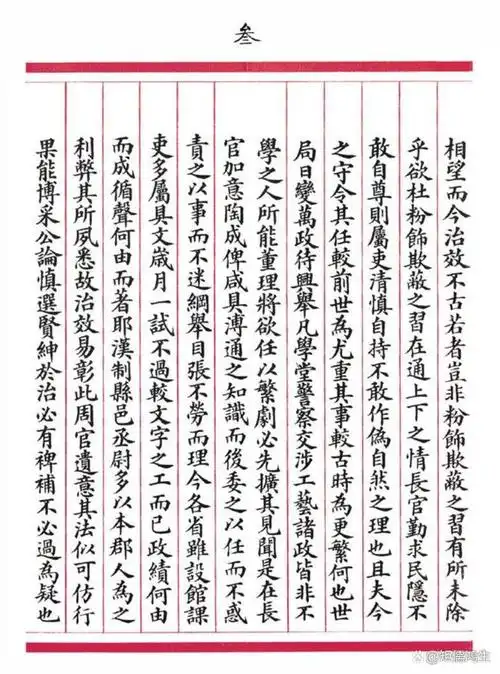 叁
相望而今治效不古若者豈非粉飾欺蔽之習有所未除
乎欲杜粉飾欺蔽之習在通上下之情長官勤求民隱不
敢自尊則屬吏清慎自持不敢作偽自然之理也且夫今
之守令其任較前世為尤重其事較古時為更繁何也世
局日變萬政待興舉凡學堂警察交涉工藝諸政皆非不
學之人所能董理將欲任以繁劇必先擴其見聞是在長
官加意陶成俾咸具溥通之知識而後委之以任而不惑
責之以事而不迷綱舉目張不勞而理今各省雖設館課
吏多屬具文歲月一試不過較文字之工而已政績何由
而成循聲何由而著耶漢制縣邑丞尉多以本郡人為之
利弊其所夙悉故治效易彰此周官遺意其法似可仿行
果能博采公論慎選賢紳於治必有裨補不必過為疑也